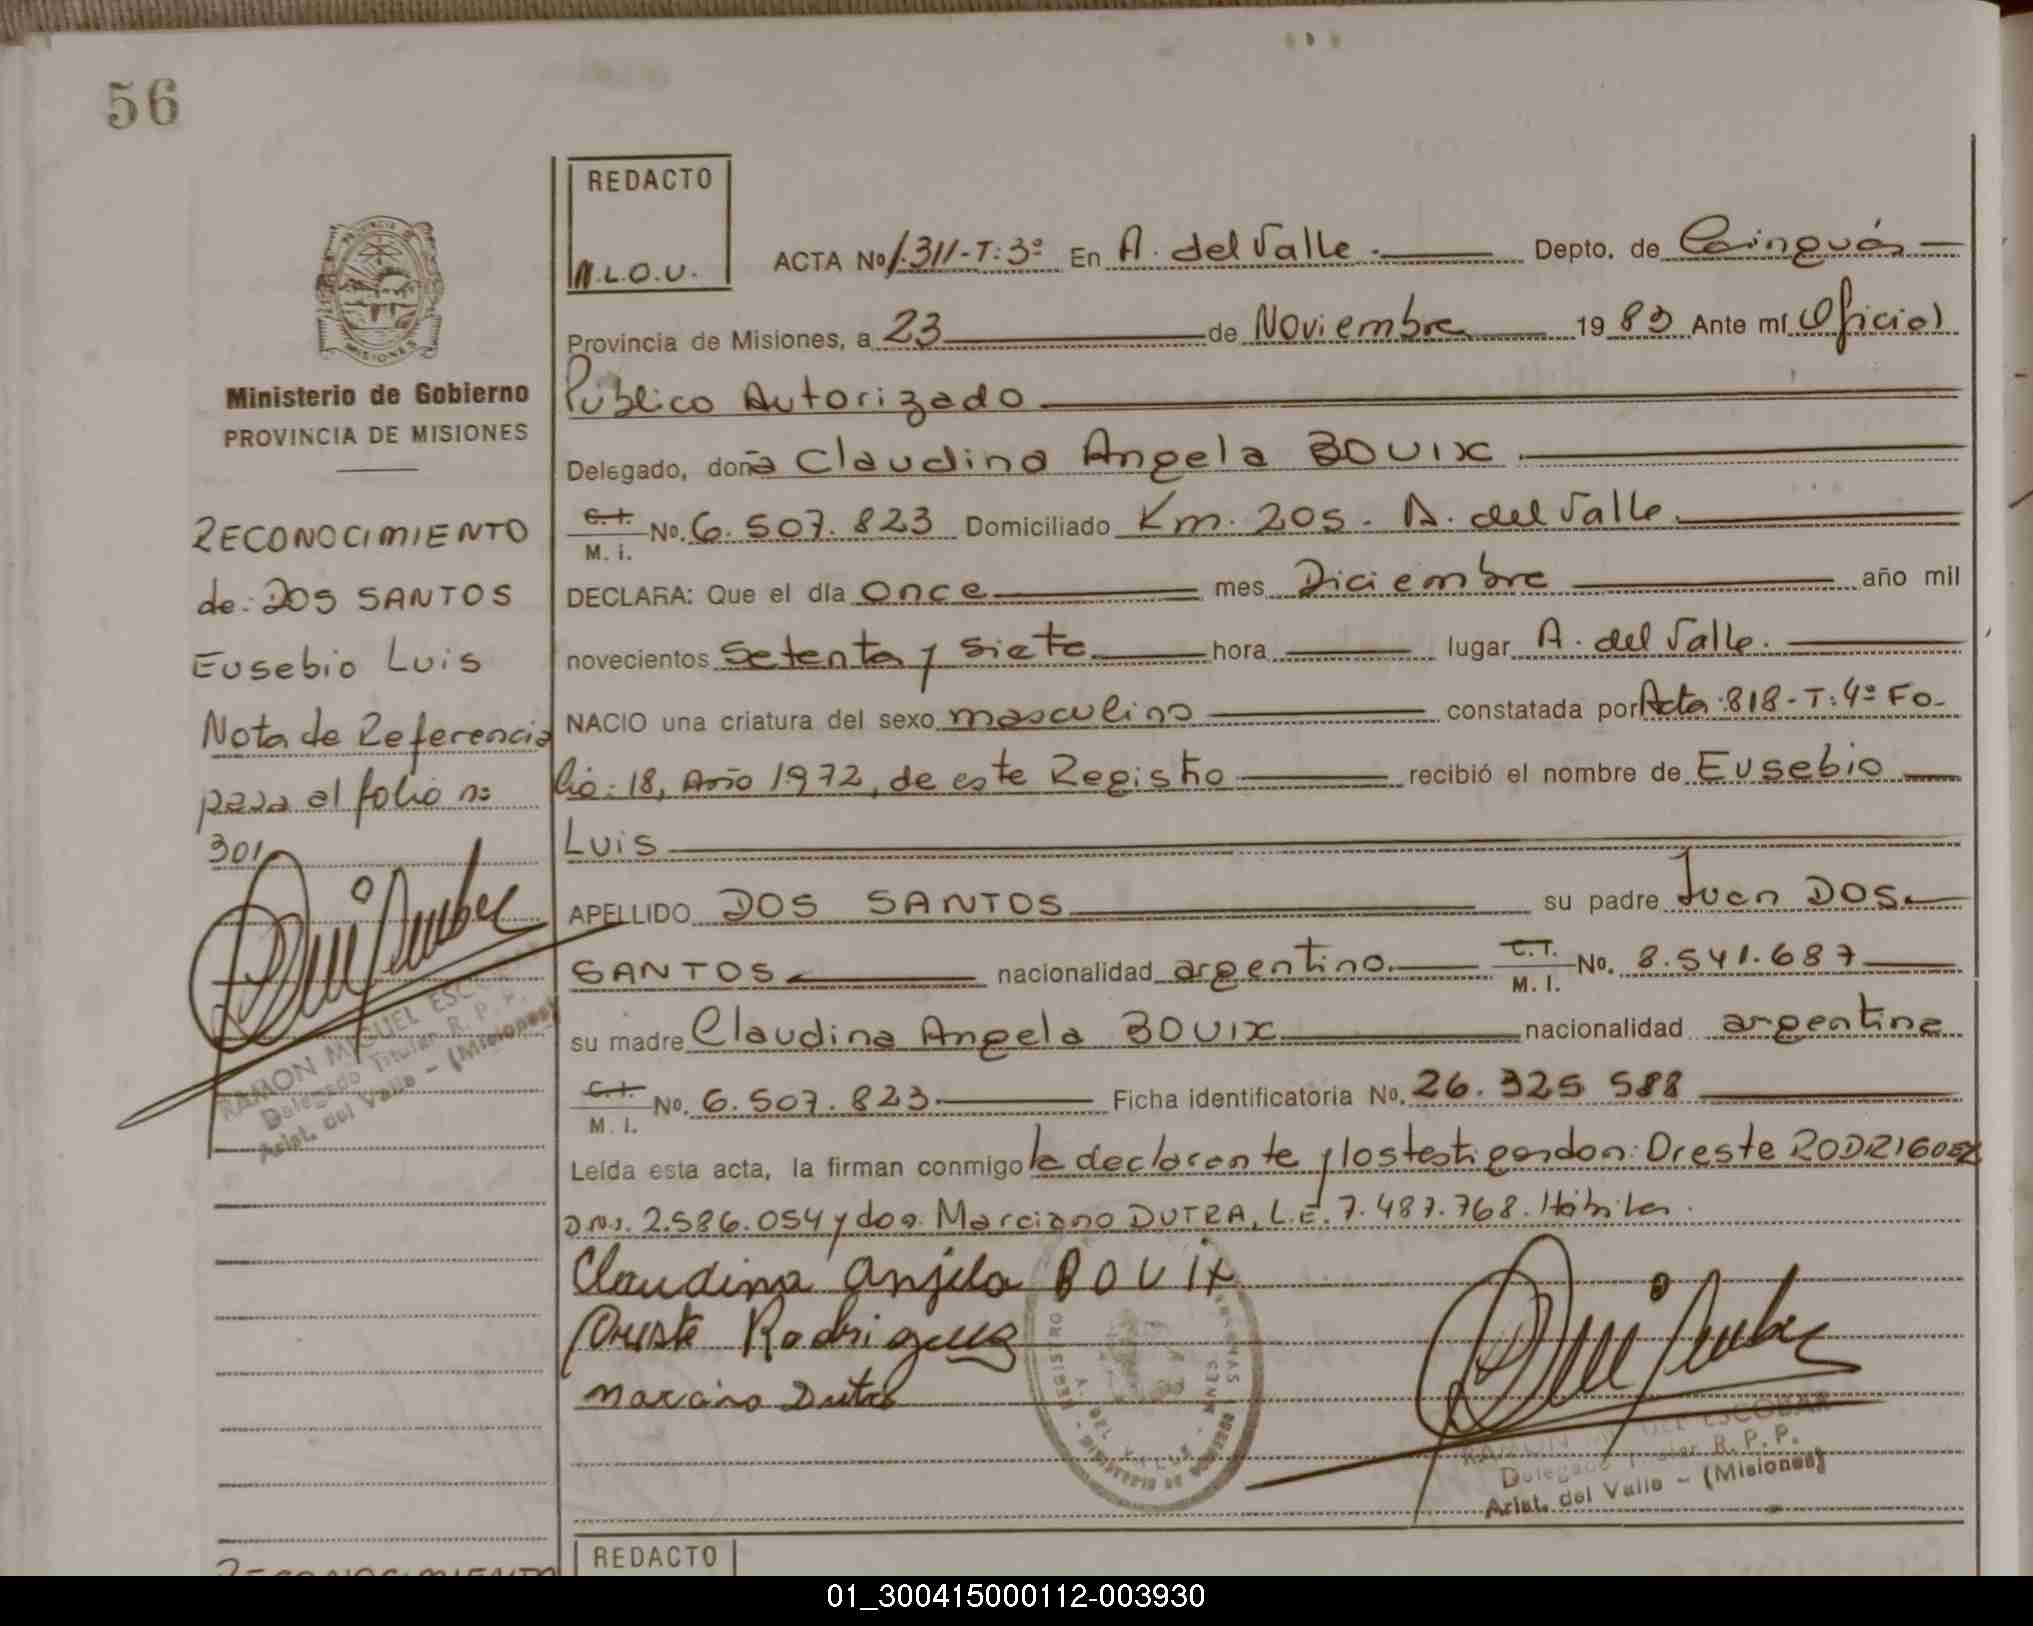 56
REDACTO
M.L.O.U.
ACTA No 1.311-T:3º En A. del Valle.- Depto. de Cainguás
Provincia de Misiones, a 23 de Noviembre 1983 Ante mí Oficial
Público Autorizado
Delegado, doña Claudina Angela BOUIX
C.I. M.I. No. 6.507.823 Domiciliado Km. 205. A. del Valle
DECLARA: Que el día once mes Diciembre año mil
novecientos setenta y siete hora lugar A. del Valle.
NACIO una criatura del sexo masculino constatada por Acta:818-T:4º Fo-
lio: 18, Año 1972, de este Registro recibió el nombre de Eusebio
Luis
APELLIDO DOS SANTOS su padre Juan DOS
SANTOS nacionalidad argentino C.I. M.I. No. 8.541.687
su madre Claudina Angela BOUIX nacionalidad argentina
C.I. M.I. No. 6.507.823 Ficha identificatoria No. 26.325 588
Leída esta acta, la firman conmigo la declarante y los testigos don: Oreste RODRIGUEZ
DNI. 2.586.054 y don Marciano DUTRA, L.E. 7.487.768. Hábiles.
Claudina Anjela BOUIX
Oreste Rodriguez
Marciano Dutra
RAMON MIGUEL ESCOBAR
Delegado Titular R. P. P.
Arist. del Valle - (Misiones)
REDACTO
PROVINCIA DE
MISIONES
Ministerio de Gobierno
PROVINCIA DE MISIONES
RECONOCIMIENTO
de: DOS SANTOS
Eusebio Luis
Nota de Referencia
pasa al folio nº
301
RAMON MIGUEL ESC
Delegado Titular R. P. P.
Arist. del Valle - (Misiones)
RECONOCIMIENTO
01_300415000112-003930